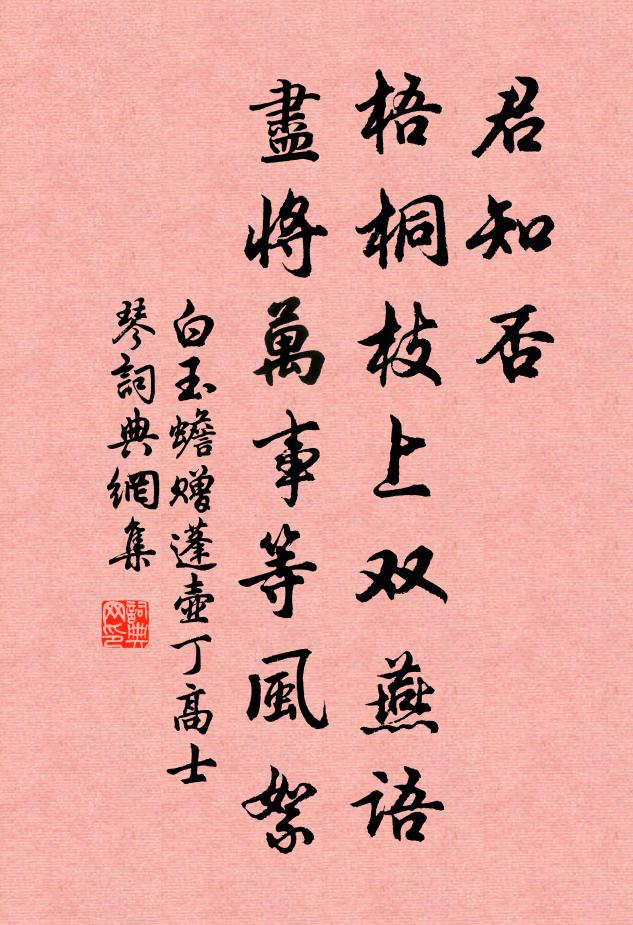 君知否
梧桐枝上双燕語
盡將萬事等風絮
白玉蟾赠蓬壺丁高士
琴詞典網集
詞典网印